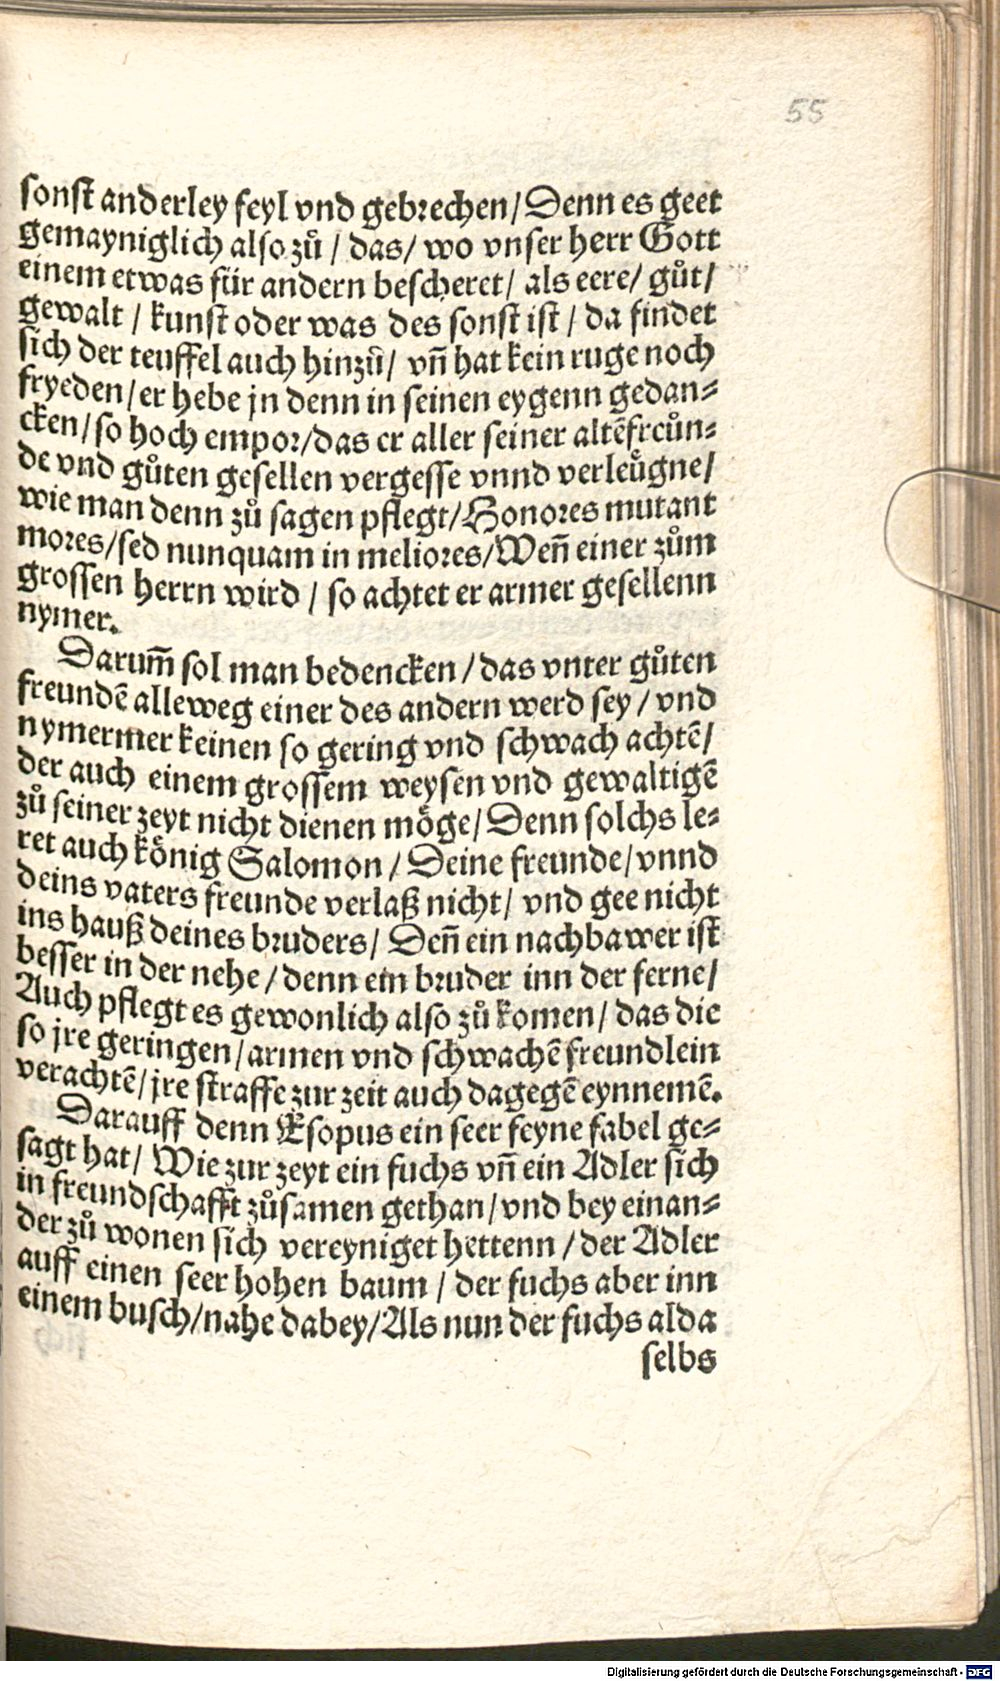 55
sonst anderley feyl vnd gebrechen/ Denn es geet
gemayniglich also zů / das/ wo vnser herr Gott
einem etwas für andern bescheret/ als eere/ gůt/
gewalt / kunst oder was des sonst ist / da findet
sich der teuffel auch hinzů/ vñ hat kein ruge noch
fryeden/ er hebe jn denn in seinen eygenn gedan⸗
cken/ so hoch empor/ das er aller seiner altẽ freůn⸗
de vnd gůten gesellen vergesse vnnd verleůgne/
wie man denn zů sagen pflegt/ Honores mutant
mores/ sed nunquam in meliores/ Weñ einer zům
grossen herrn wird / so achtet er armer gesellenn
nymer.
Darum̃ sol man bedencken / das vnter gůten
freundẽ alleweg einer des andern werd sey / vnd
nymermer keinen so gering vnd schwach achtẽ/
der auch einem grossem weysen vnd gewaltigẽ
zů seiner zeyt nicht dienen möge/ Denn solchs le⸗
ret auch könig Salomon / Deine freunde/ vnnd
deins vaters freunde verlaß nicht/ vnd gee nicht
ins hauß deines bruders/ Deñ ein nachbawer ist
besser in der nehe / denn ein bruder inn der ferne/
Auch pflegt es gewonlich also zů komen/ das die
so jre geringen/ armen vnd schwachẽ freundlein
verachtẽ/ jre straffe zur zeit auch dagegẽ eynnemẽ.
Darauff denn Esopus ein seer feyne fabel ge⸗
sagt hat/ Wie zur zeyt ein fuchs vñ ein Adler sich
in freundschafft zůsamen gethan/ vnd bey einan⸗
der zů wonen sich vereyniget hettenn / der Adler
auff einen seer hohen baum / der fuchs aber inn
einem busch/ nahe dabey/ Als nun der fuchs alda
selbs
Digitalisierung gefördert durch die Deutsche Forschungsgemeinschaft - DFG